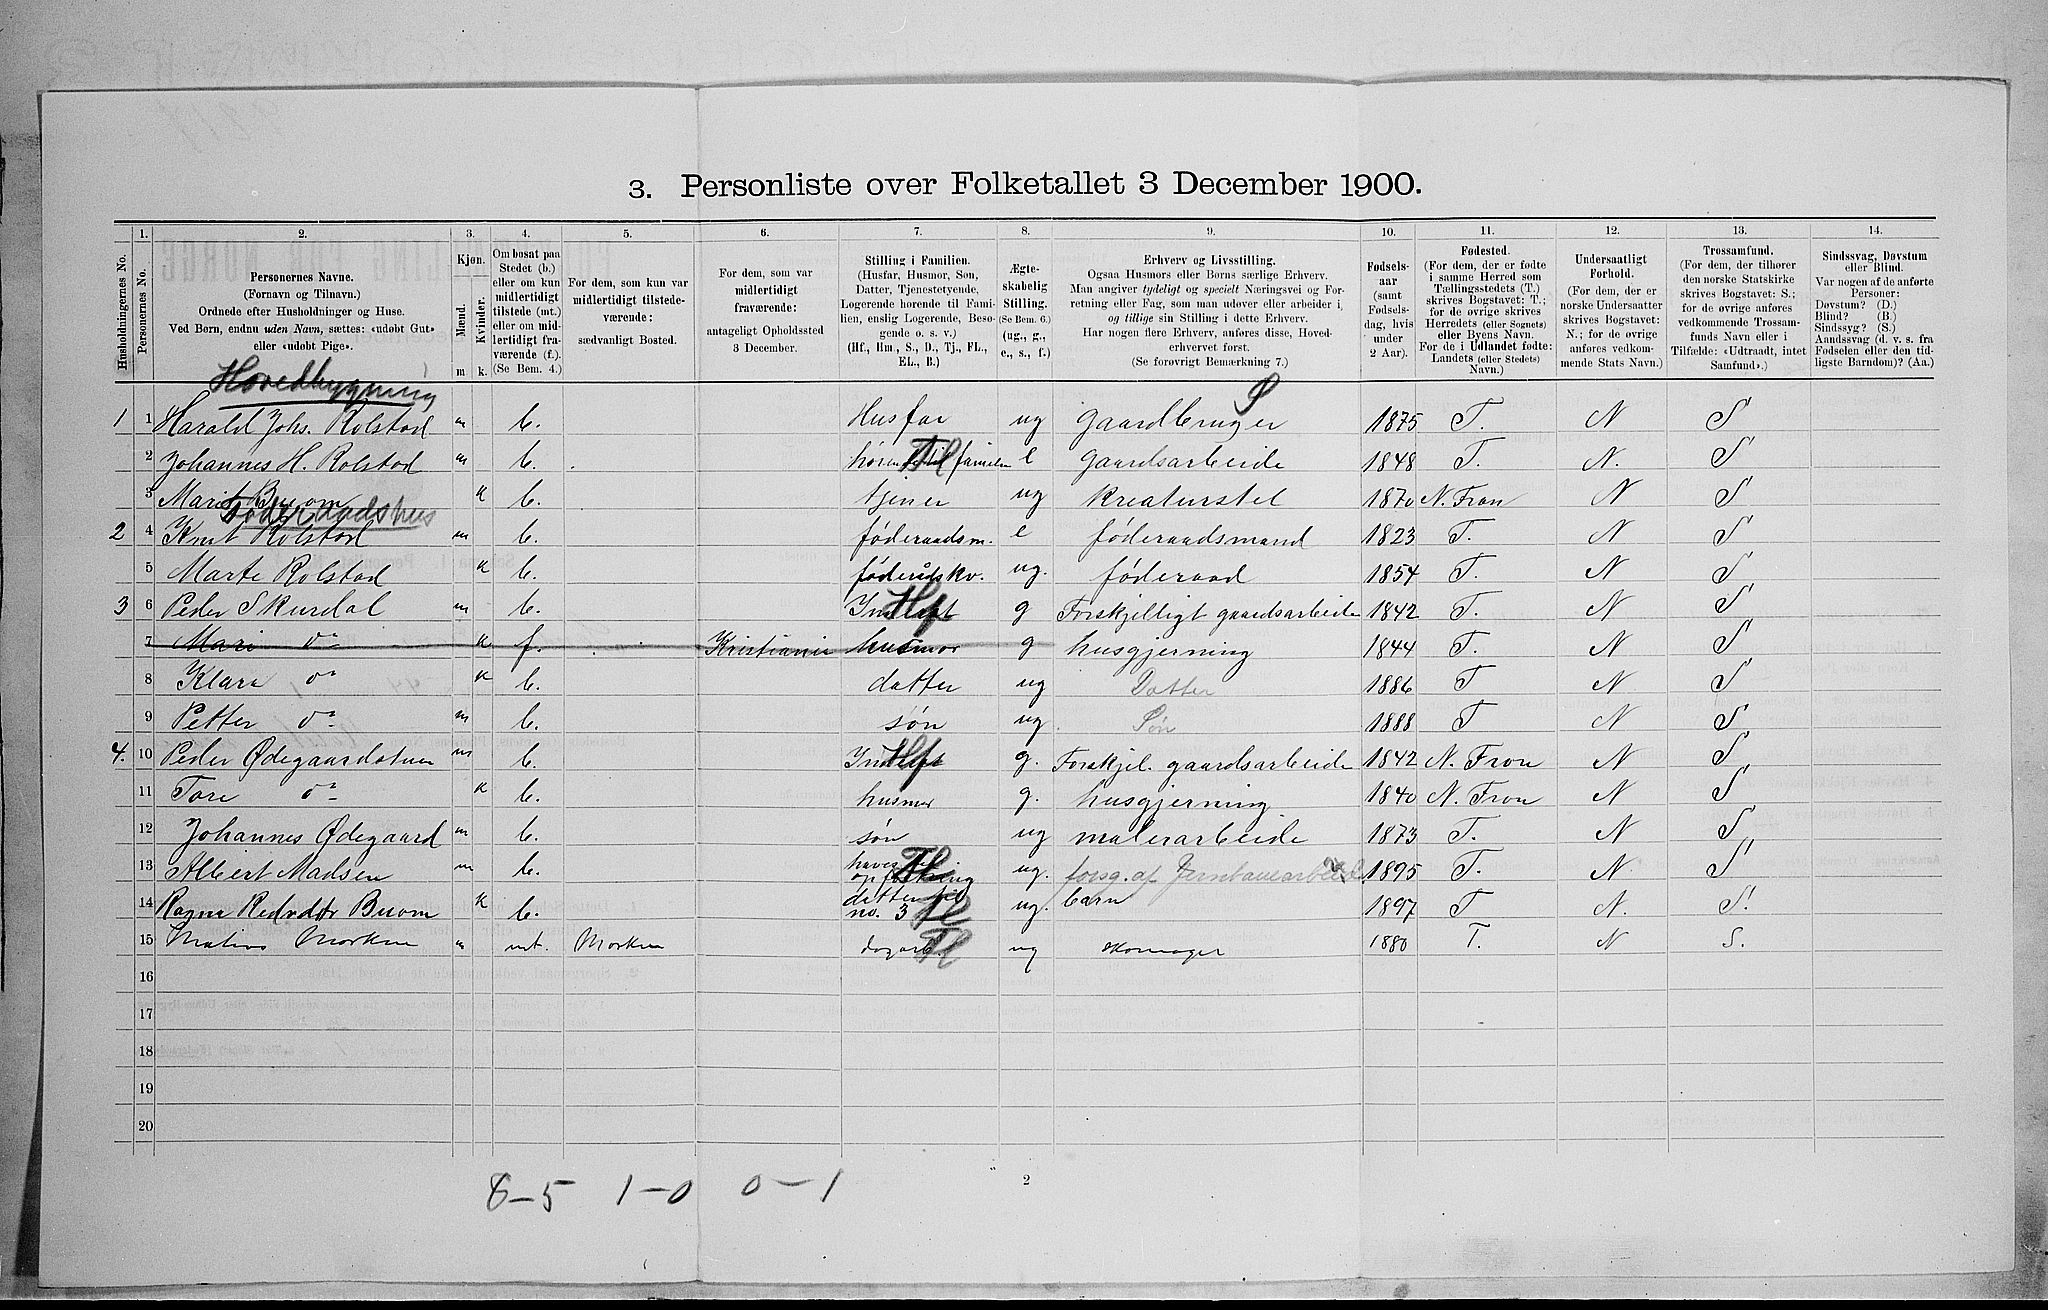 3. Personliste over Folketallet 3 December 1900.
1. 2. 3. 4. 5. 6. 7. 8. 9. 10. 11. 12. 13. 14.
Husholdningernes No.
Personernes No.
Personernes Navne.
(Fornavn og Tilnavn.)
Ordnede efter Husholdninger og Huse.
Ved Børn, endnu uden Navn, sættes: «udøbt Gut»
eller «udøbt Pige».
Kjøn.
Mænd.
Kvinder.
m k.
Om bosat paa
Stedet (b.)
eller om kun
midlertidigt
tilstede (mt.)
eller om mid-
lertidigt fra-
værende (f.).
(Se Bem. 4.)
For dem, som kun var
midlertidigt tilstede-
værende:
sædvanligt Bosted.
For dem, som var
midlertidigt
fraværende:
antageligt Opholdssted
3 December.
Stilling i Familien.
(Husfar, Husmor, Søn,
Datter, Tjenestetyende,
Logerende hørende til Fami-
lien, enslig Logerende, Besø-
gende o. s. v.)
(Hf., Hm., S., D., Tj., FL.,
EL., B.)
Ægte-
skabelig
Stilling.
(Se Bem. 6.)
(ug., g.,
e., s., f.)
Erhverv og Livsstilling.
Ogsaa Husmors eller Børns særlige Erhverv.
Man angiver tydeligt og specielt Næringsvei og For-
retning eller Fag, som man udøver eller arbeider i,
og tillige sin Stilling i dette Erhverv.
Har nogen flere Erhverv, anføres disse, Hoved-
erhvervet først.
(Se forøvrigt Bemerkning 7.)
Fødsels-
aar
(samt
Fødsels-
dag, hvis
under
2 Aar).
Fødested.
(For dem, der er fødte
i samme Herred som
Tællingsstedets (T.)
skrives Bogstavet: T.;
for de øvrige skrives
Herredets (eller Sognets)
eller Byens Navn.
For de i Udlandet fødte:
Landets (eller Stedets)
Navn.)
Undersaatligt
Forhold.
(For dem, der er
norske Undersaatter
skrives Bogstavet:
N.; for de øvrige
anføres vedkom-
mende Stats Navn.)
Trossamfund.
(For dem, der tilhører
den norske Statskirke
skrives Bogstavet: S.;
for de øvrige anføres
vedkommende Trossam-
funds Navn eller i
Tilfælde: «Udtraadt, intet
Samfund».)
Sindssvag, Døvstum
eller Blind.
Var nogen af de anførte
Personer:
Døvstum? (D.)
Blind? (B.)
Sindssyg? (S.)
Aandssvag (d. v. s. fra
Fødselen eller den tid-
ligste Barndom)? (Aa.)
Hovedbygning
1 1 Harald Johs. Rolstad m b. Husfar ug gaardbruger S 1875 T. N S
2 Johannes H. Rolstad m b. hører til familien Fl e gaardsarbeide 1848 T. N. S
3 Marit Buom k b. tjener ug kreaturstel 1870 N. Fron N S
Føderaadshus
2 4 Knut Rolstad m b. føderaadsm. e føderaadsmand 1823 T. N S
5 Marte Rolstad k b. føderådskv. ug. føderaad 1854 T. N S
3 6 Peder Skurdal m b. Hf g Forskjelligt gaardsarbeide 1842 T. N S
7 Mari do k f. Kristiania husmor g husgjerning 1844 T. N S
8 Klara do k b. datter ug Datter 1886 T N S
9 Petter do m b. søn ug. Søn 1888 T N S
4. 10 Peder Ødegaardstuen m b. Hf g. Forskjel. gaardsarbeide 1842 N. Fron N S
11 Tore do k b. husmor g. husgjerning 1840 N. Fron N S
12 Johannes Ødegaard m b. søn ug malerarbeide 1873 T. N S
13 Albert Madsen m b. haves til opfostring Fl ug. forsg. af Jernbanearbeide 1895 T. N. S
14 Ragna Buom k b. datter til no. 3 Fl ug. barn 1897 T N. S.
15 Matias Morken m mt. Morken Fl ug skomager 1880 T. N S.
16
17
18
19
20
8-5 1-0 0-1
2